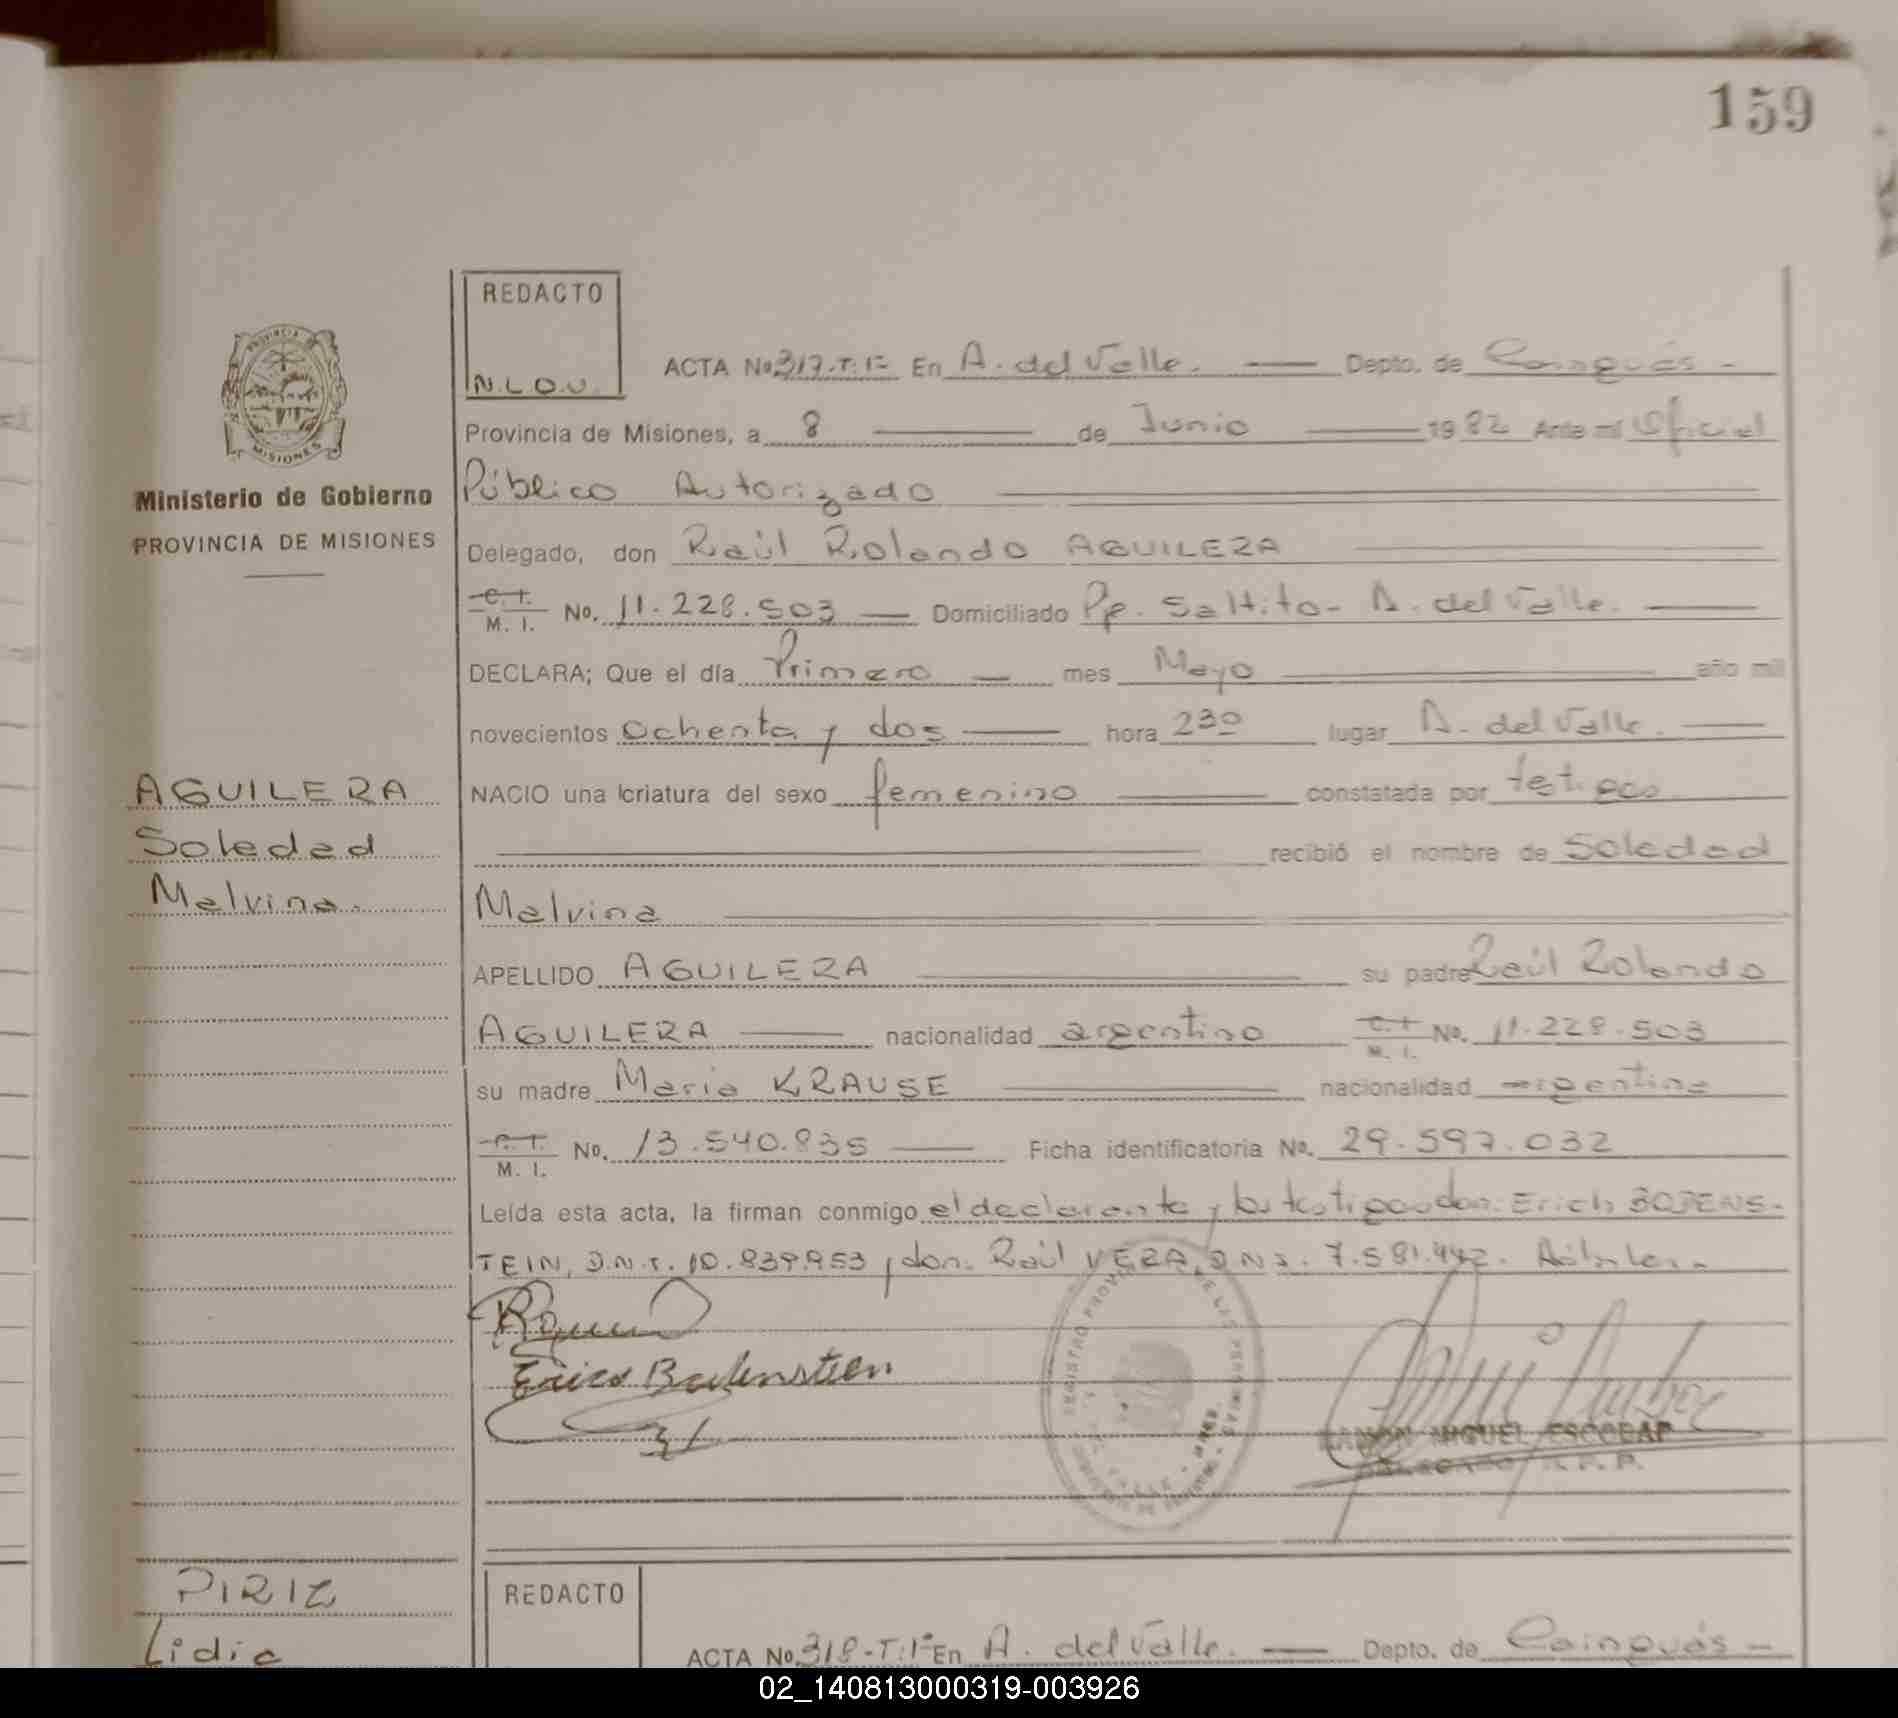 159
REDACTO
N.L.O.U.
PROVINCIA DE
MISIONES
Ministerio de Gobierno
PROVINCIA DE MISIONES
ACTA No 317-T:1º En A. del Valle. Depto. de Cainguás -
Provincia de Misiones, a 8 de Junio 1982 Ante mí Oficial
Público Autorizado
Delegado, don Raúl Rolando AGUILERA
C. I. M. I. No. 11.228.503 Domiciliado Pje. Saltito - A. del Valle.
DECLARA; Que el día Primero mes Mayo año mil
novecientos ochenta y dos hora 230 lugar A. del Valle.
AGUILERA
Soledad
Malvina.
NACIO una criatura del sexo femenino constatada por testigos
recibió el nombre de Soledad
Malvina
APELLIDO AGUILERA su padre Raúl Rolando
AGUILERA nacionalidad argentino C. I. M. I. No. 11.228.503
su madre Maria KRAUSE nacionalidad argentina
C. I. M. I. No. 13.540.835 Ficha identificatoria No. 29.597.032
Leída esta acta, la firman conmigo el declarante y los testigos don: Erich BODENS-
TEIN, D.N.I. 10.839.953 y don. Raúl VERA, D.N.I. 7.581.442.
REGISTRO PROV DE LAS PERSONAS
VALLE
RAMON MIGUEL ESCOBAR
DELEGADO R. P. P.
PIRIZ
Lidia
REDACTO
ACTA No 318-T:1º En A. del Valle. Depto. de Cainguás -
02_140813000319-003926